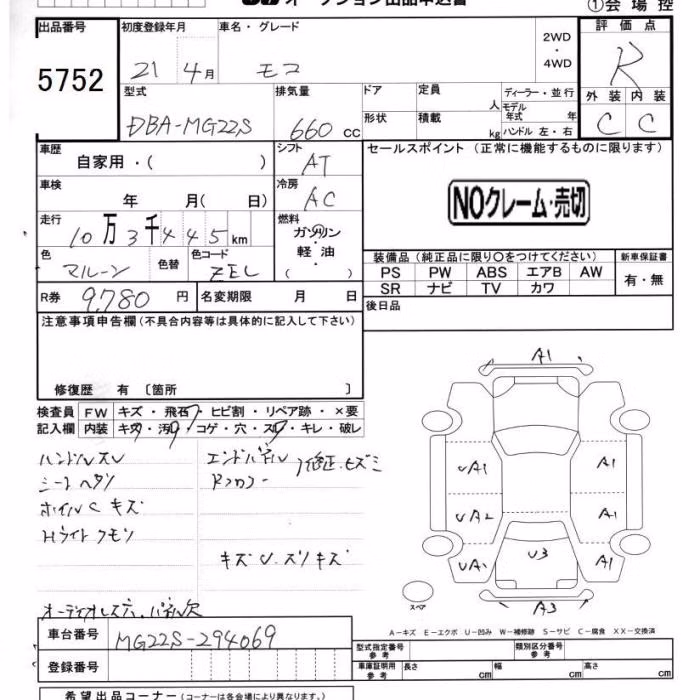 オークション出品申込書
①会場控
出品番号 初度登録年月 車名・グレード 2WD・4WD 評価点
5752 21 4月 モコ R
型式 排気量 ドア 定員 人 ディーラー・並行 外装 内装
DBA-MG22S 660cc 形状 積載 kg モデル年式 年 ハンドル 左・右 C C
車歴 自家用・( ) シフト AT セールスポイント (正常に機能するものに限ります)
車検 年 月( 日) 冷房 AC NOクレーム・売切
走行 10万3千445km 燃料 ガソリン
軽油
( )
色 マルーン 色替 色コード ZEL
装備品 (純正品に限り○をつけてください) 新車保証書
PS PW ABS エアB AW 有・無
SR ナビ TV カワ
R券 9,780円 名変期限 月 日 後日品
注意事項申告欄 (不具合内容等は具体的に記入して下さい)
修復歴 有 〔箇所 〕
検査員 FW キズ・飛石・ヒビ割・リペア跡・×要
記入欄 内装 キズ・汚レ・コゲ・穴・スレ・キレ・破レ
ハンドルスレ エンドパネル 修正、ヒズミ
シートヘタリ Rフロアー
ホイルCキズ
Hライトクモリ
キズU.スリキズ
オーディオレス穴、パネル欠
A1
UA1 A1
UA2 A1
UA1 U3 A1
スペア A3
A-キズ E-エクボ U-凹み W-補修跡 S-サビ C-腐食 XX-交換済
車台番号 MG22S-294069
型式指定番号 参考 類別区分番号 参考
登録番号 車庫証明用 参考 長さ cm 幅 cm 高さ cm
希望出品コーナー (コーナーは各会場により異なります。)